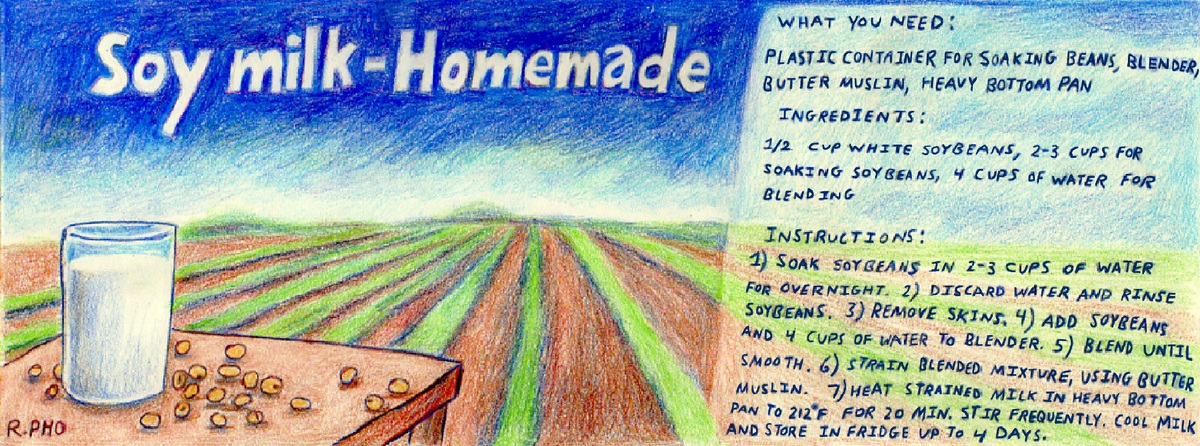 Soy milk-Homemade
WHAT YOU NEED:
PLASTIC CONTAINER FOR SOAKING BEANS, BLENDER,
BUTTER MUSLIN, HEAVY BOTTOM PAN
INGREDIENTS:
1/2 CUP WHITE SOYBEANS, 2-3 CUPS FOR
SOAKING SOYBEANS, 4 CUPS OF WATER FOR
BLENDING
INSTRUCTIONS:
1) SOAK SOYBEANS IN 2-3 CUPS OF WATER
FOR OVERNIGHT. 2) DISCARD WATER AND RINSE
SOYBEANS. 3) REMOVE SKINS. 4) ADD SOYBEANS
AND 4 CUPS OF WATER TO BLENDER. 5) BLEND UNTIL
SMOOTH. 6) STRAIN BLENDED MIXTURE, USING BUTTER
MUSLIN. 7) HEAT STRAINED MILK IN HEAVY BOTTOM
PAN TO 212°F FOR 20 MIN. STIR FREQUENTLY. COOL MILK
AND STORE IN FRIDGE UP TO 4 DAYS.
R.PHO